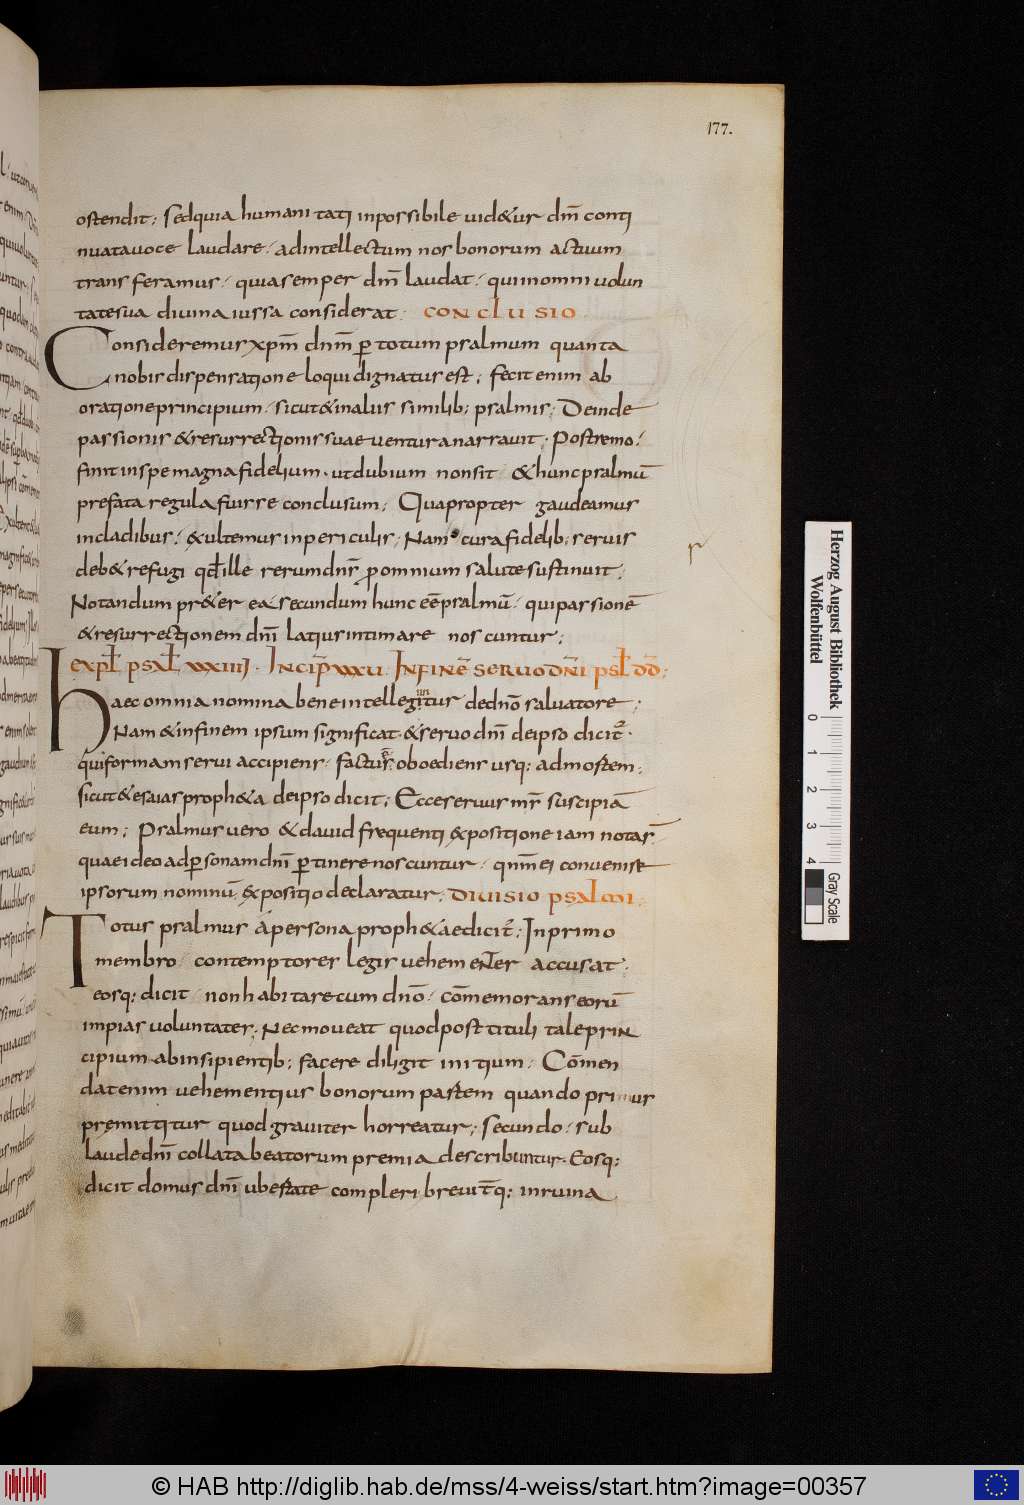 177.
ostendit; sed quia humanitati inpossibile uid&ur dm̄ conti
nuata uoce laudare, ad intellectum nos bonorum actuum
transferamus, qui a semper dm̄ laudat, qui in omni uolun
tate sua diuina iussa considerat. CONCLUSIO
Consideremus xpm̄ dnm̄ ꝑ totum psalmum quanta
nobis dispensatione loqui dignatus est; fecit enim ab
oratione principium, sicut & in aliis similib; psalmis; Deinde
passionis & resurrectionis suae uentura narrauit. Postremo
finit in spe magna fidelium, ut dubium non sit & hunc psalmū
prefata regula fuisse conclusum; Quapropter gaudeamus
in cladibus, exultemus in periculis; Nam cura fidelib; seruis
deb& refugi qđ ille rerum dn̄s ꝓ omnium salute sustinuit;
Notandum pr&er ea secundum hunc eē psalmū, qui passionē
& resurrectionem dn̄i latius intimare noscuntur;
EXPŁ PSAŁ XXXIIII. INCIP̄ XXXV. IN FINĒ SERUO DN̄I PSŁ DD̄;
Haec omnia nomina bene intelleguntur de dn̄o saluatore;
Nam & in finem ipsum significat & seruo dn̄i de ipso dicit̄.
qui formam serui accipiens factus ē oboediens usq; ad mortem;
sicut & esaias proph&a de ipso dicit; Ecce seruus m̄s suscipiā
eum; Psalmus uero & dauid frequenti expositione iam notas̄
quae ideo ad ꝑsonam dn̄i ꝑtinere noscuntur, qnm̄ ei conuenist
ipsorum nominū expositio declaratur; DIUISIO PSALMI;
Totus psalmus a persona proph&ae dicit̄; In primo
membro contemptores legis uehementer accusat;
eosq; dicit non habitare cum dn̄o, cōmemorans eorū
impias uoluntates; Nec moueat quod post tituli tale prin
cipium ab insipientib; facere diligit initium. Cōmen
dat enim uehementius bonorum partem quando prius
premittitur quod grauiter horreatur; secundo sub
laude dn̄i collata beatorum premia describuntur. Eosq;
dicit domus dn̄i ubertate compleri breuit̄q; in ruina
Herzog August Bibliothek
Wolfenbüttel
0 1 2 3 4
Gray Scale
© HAB http://diglib.hab.de/mss/4-weiss/start.htm?image=00357